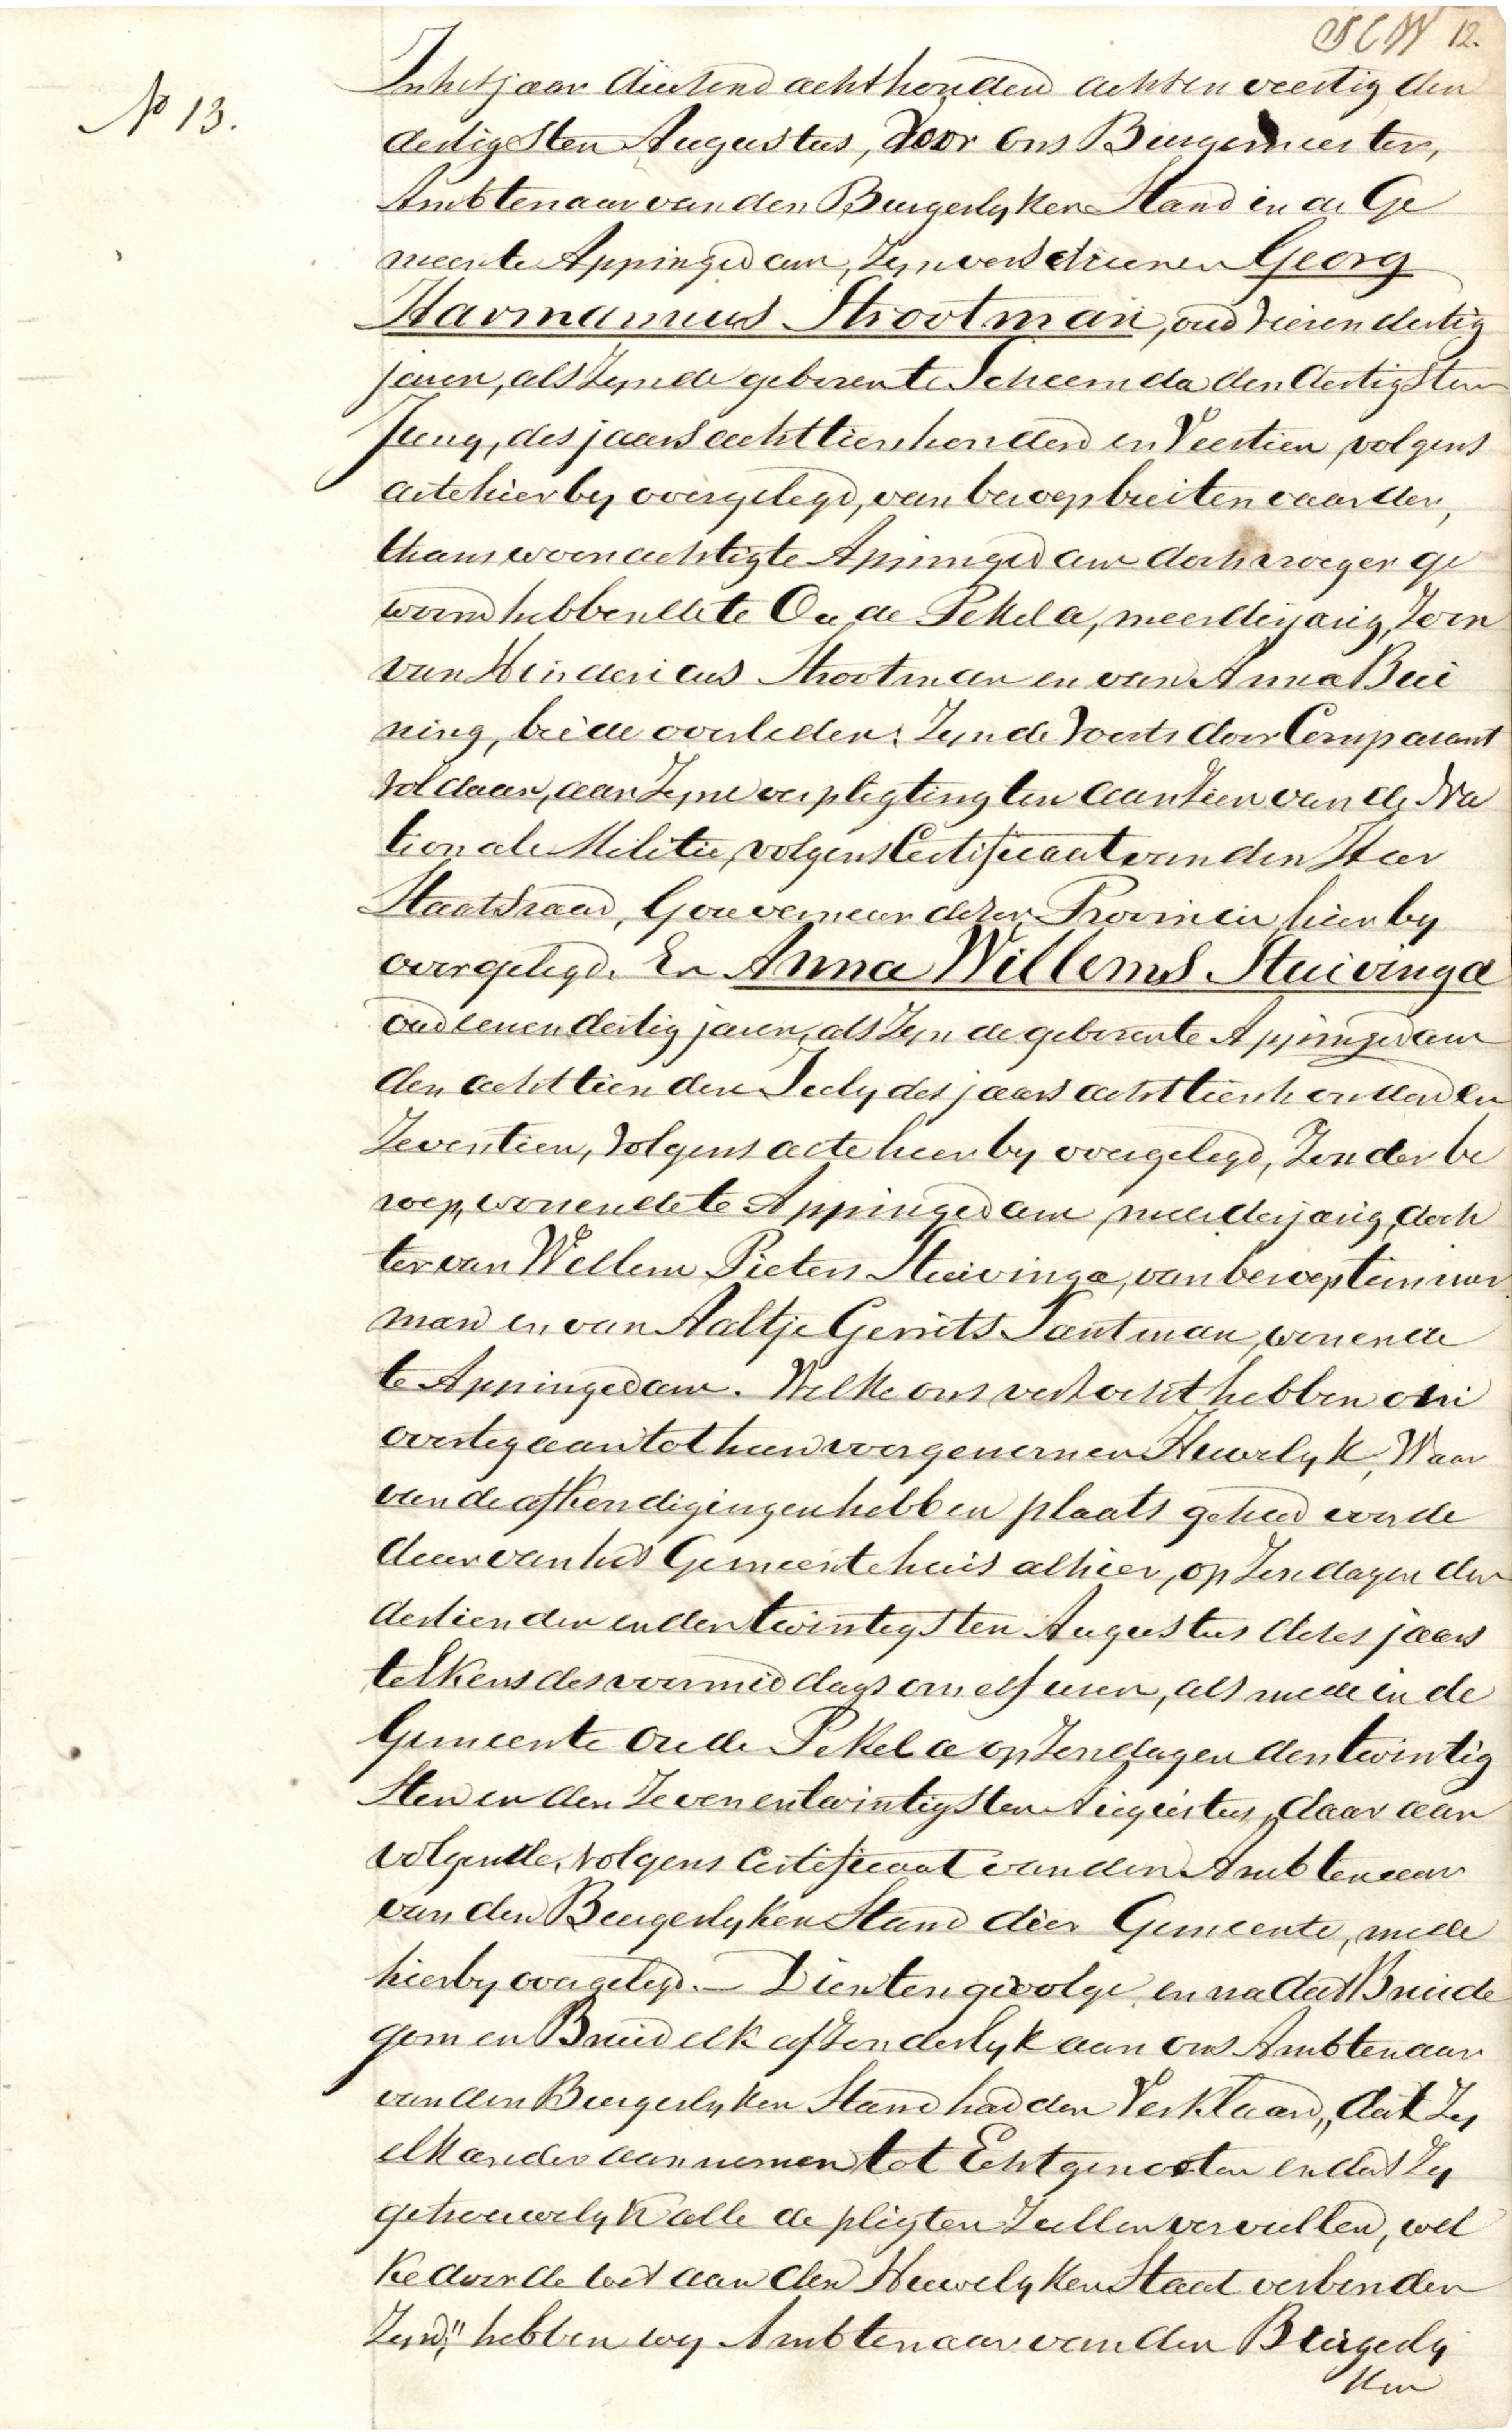 12.
No 13.
In het jaar duizend achthonderd acht en veertig den
dertigsten Augustus, voor ons Burgemeester,
Ambtenaar van den Burgerlyken Stand in de Ge
meente Appingedam, zyn verschenen Georg
Harmannus Strootman, oud vieren dertig
jaren, als zynde geboren te Scheemda den dertigsten
Juny, des jaars achttienhonderd en Veertien, volgens
acte hierby overgelegd, van beroep buitenvaarder,
thans woonachtig te Appingedam doch vroeger ge
woond hebbende te Oude Pekela, meerderjarig, Zoon
van Hindericus Strootman en van Anna Bui
ning, beide overleden. Zynde voorts door Comparant
voldaan, aan zyne verpligting ten aanzien van de Na
tionale Militie, volgens Certificaat van den Heer
Staatsraad, Gouverneur dezer Provincie hierby
overgelegd. En Anna Willems Stuivinga
oud eenen dertig jaren, als zynde geboren te Appingedam
den achttienden July des jaars achttienhonderd en
Zeventien, volgens acte hierby overgelegd, Zonder be
roep, wonende te Appingedam, meerderjarig, doch
ter van Willem Pieters Stuivinga, van beroep timmer
man en van Aaltje Gerrits Santman, wonende
te Appingedam. Welke ons verzocht hebben om
overtegaan tot hun voorgenomen Huwelyk, Waar
van de afkondigingen hebben plaats gehad voor de
deur van het Gemeentehuis alhier, op Zondagen den
dertienden en den twintigsten Augustus dezes jaars
telkens des voormiddags om elf uren, als mede in de
Gemeente Oude Pekela op Zondagen den twintig
sten en den Zevenentwintigsten Augustus, daar aan
volgende, volgens Certificaat van den Ambtenaar
van den Burgerlyken Stand dier Gemeente, mede
hierby overgelegd. — Dientengevolge, en na dat Bruide
gom en Bruid elk afzonderlyk aan ons Ambtenaar
van den Burgerlyken Stand hadden Verklaard, „dat Zy
elkander aannemen tot Echtgenooten en dat Zy
getrouwelyk alle de pligten zullen vervullen, wel
ke door de wet aan den Huwelyken Staat verbonden
Zyn," hebben wy Ambtenaar van den Burgerly
ken